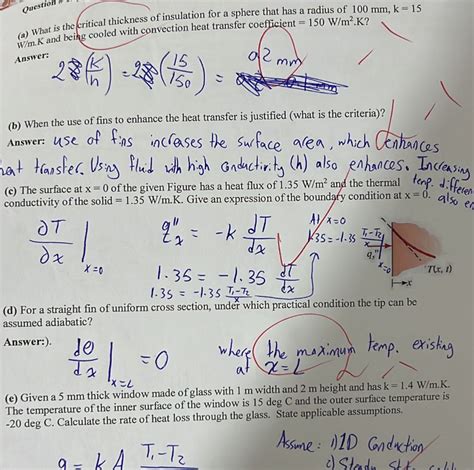 Question
(a) What is the critical thickness of insulation for a sphere that has a radius of 100 mm, k = 15
W/m.K and being cooled with convection heat transfer coefficient = 150 W/m².K?
Answer:
2 (k/h) = 2 (15/150) = 0.2 mm
(b) When the use of fins to enhance the heat transfer is justified (what is the criteria)?
Answer: use of fins increases the surface area, which enhances
heat transfer. Using fluid with high conductivity (h) also enhances. Increasing
temp. differen
also en
(c) The surface at x = 0 of the given Figure has a heat flux of 1.35 W/m² and the thermal
conductivity of the solid = 1.35 W/m.K. Give an expression of the boundary condition at x = 0.
∂T/∂x |x=0
q''x = -k dT/dx
At x=0
1.35 = -1.35 (T₁-T₂)/x
1.35 = -1.35 dT/dx
1.35 = -1.35 (T₁-T₂)/x
x=0
T(x, t)
x
(d) For a straight fin of uniform cross section, under which practical condition the tip can be
assumed adiabatic?
Answer:).
dθ/dx |x=L = 0
where the maximum temp. existing
at x=L
(e) Given a 5 mm thick window made of glass with 1 m width and 2 m height and has k = 1.4 W/m.K.
The temperature of the inner surface of the window is 15 deg C and the outer surface temperature is
-20 deg C. Calculate the rate of heat loss through the glass. State applicable assumptions.
q = kA T₁-T₂
Assume: 1) 1D Conduction
2) Steady State